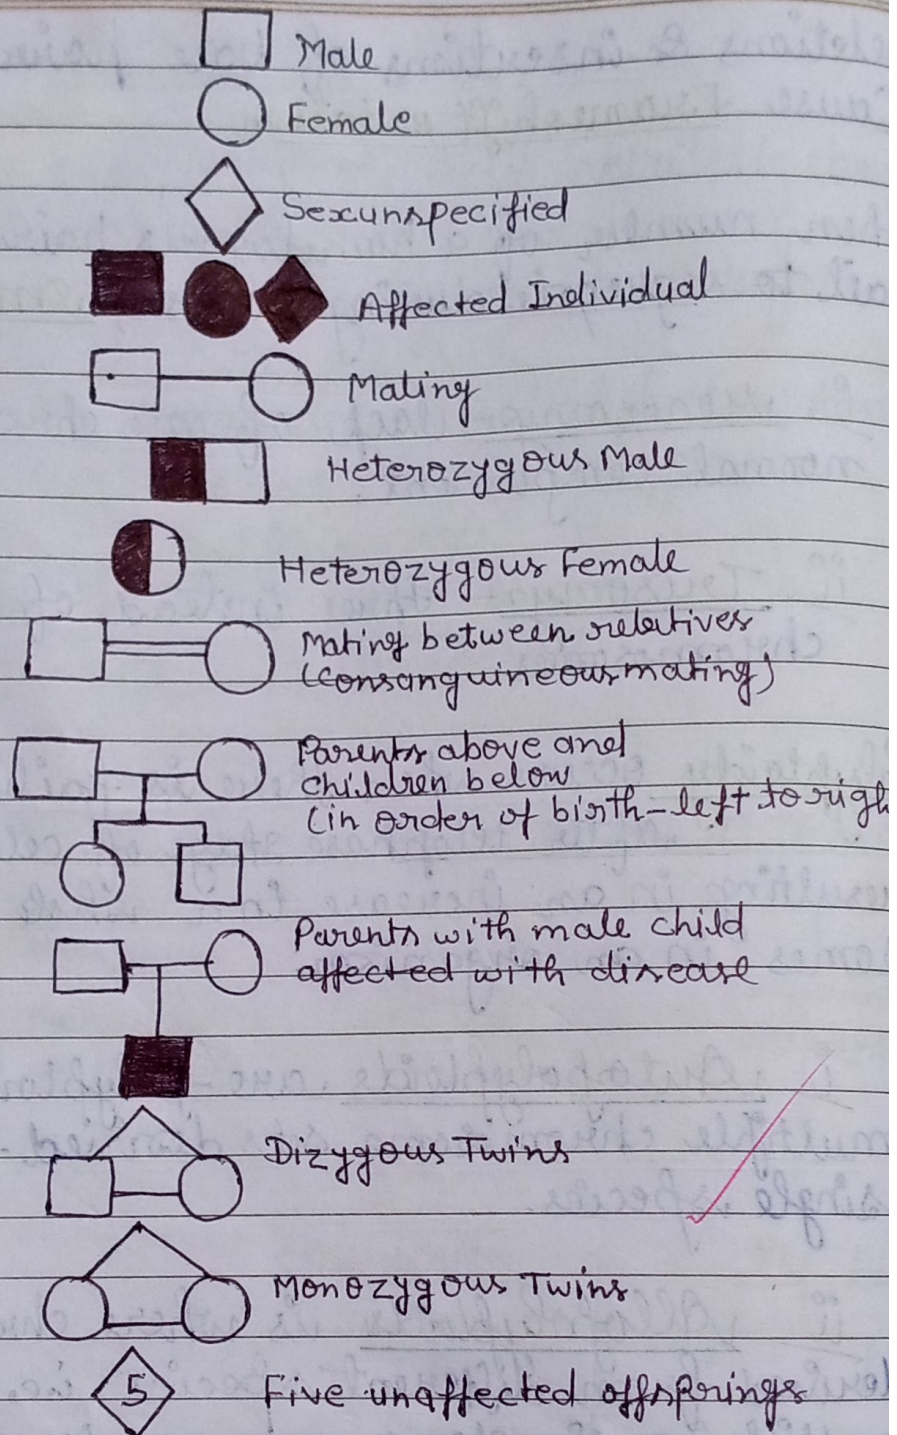 Male
Female
Sexunspecified
Affected Individual
Mating
Heterozygous Male
Heterozygous Female
Mating between relatives
(consanguineous mating)
Parents above and
children below
(in order of birth - left to righ
Parents with male child
affected with disease
Dizygous Twins
Monozygous Twins
5 Five unaffected offsprings